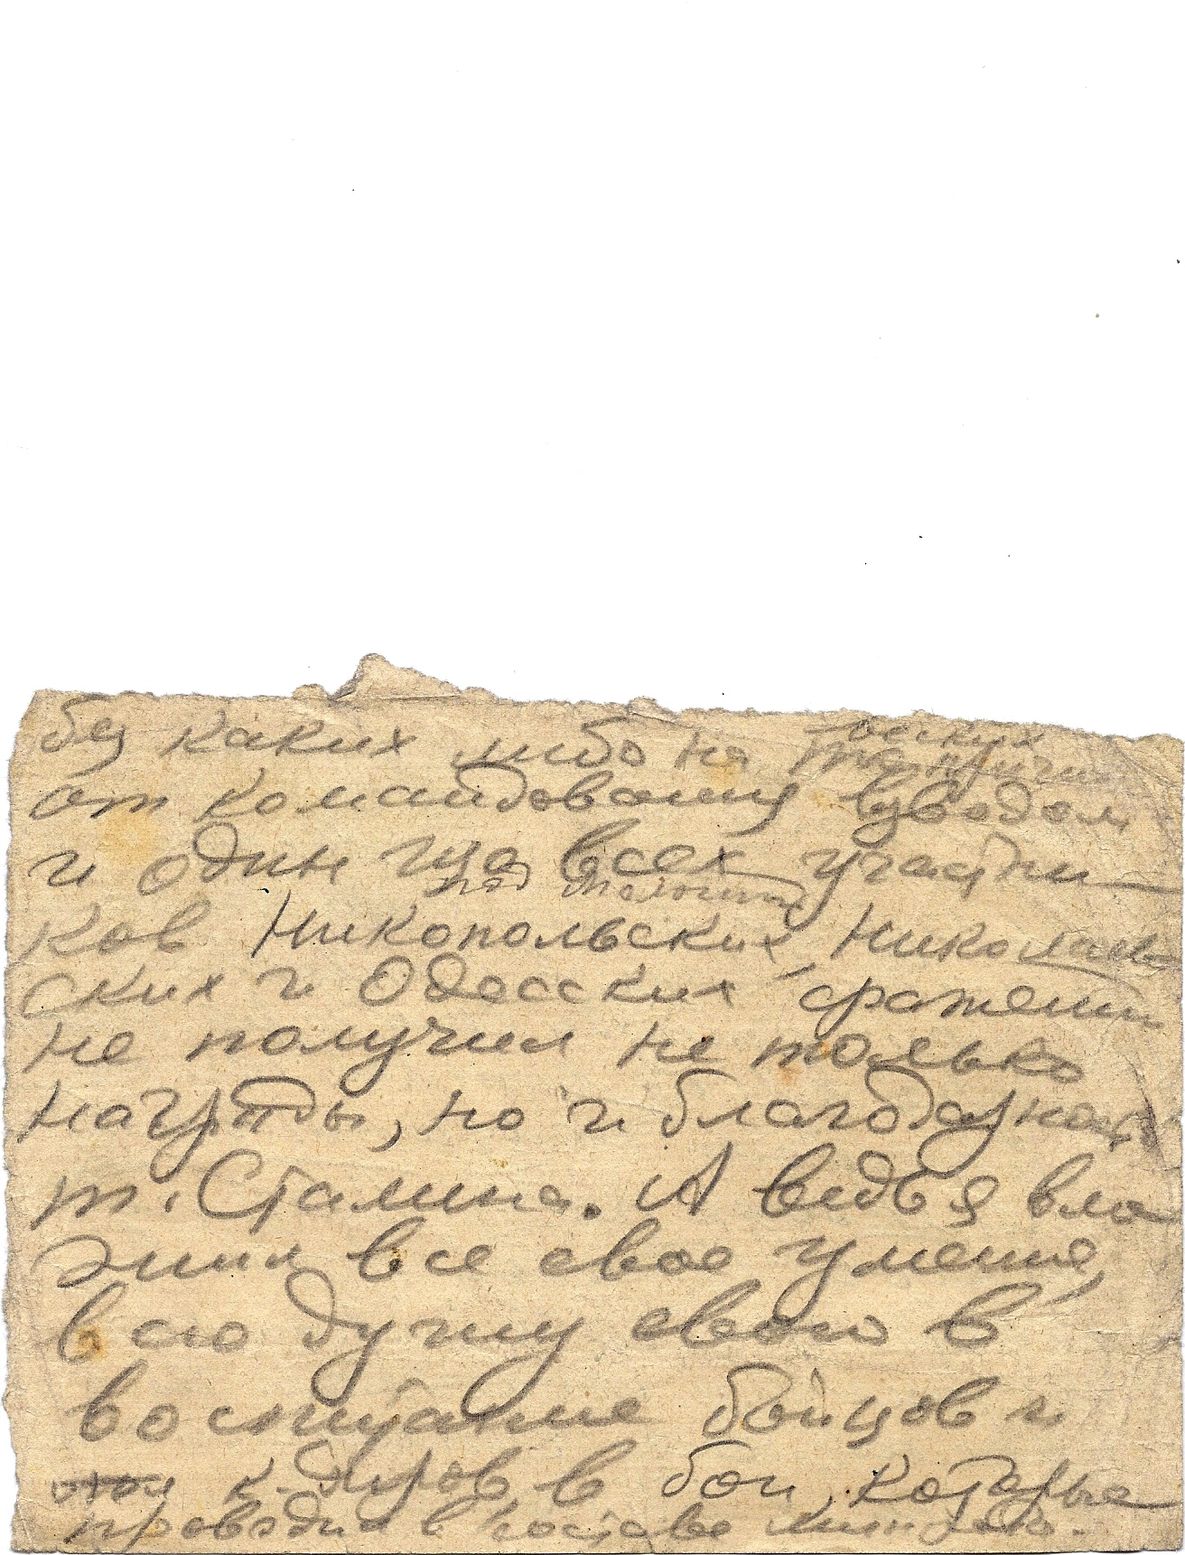 без каких либо на
от командования взводом
и один из всех участни
ков Никопольских, Николаев
ских и Одесских сражений
не получил не только
награды, но и благодарност
т. Сталина. А ведь я вло
жил все свое умение,
всю душу свою в
воспитание бойцов и
к-диров в бои, которые
проводил в составе